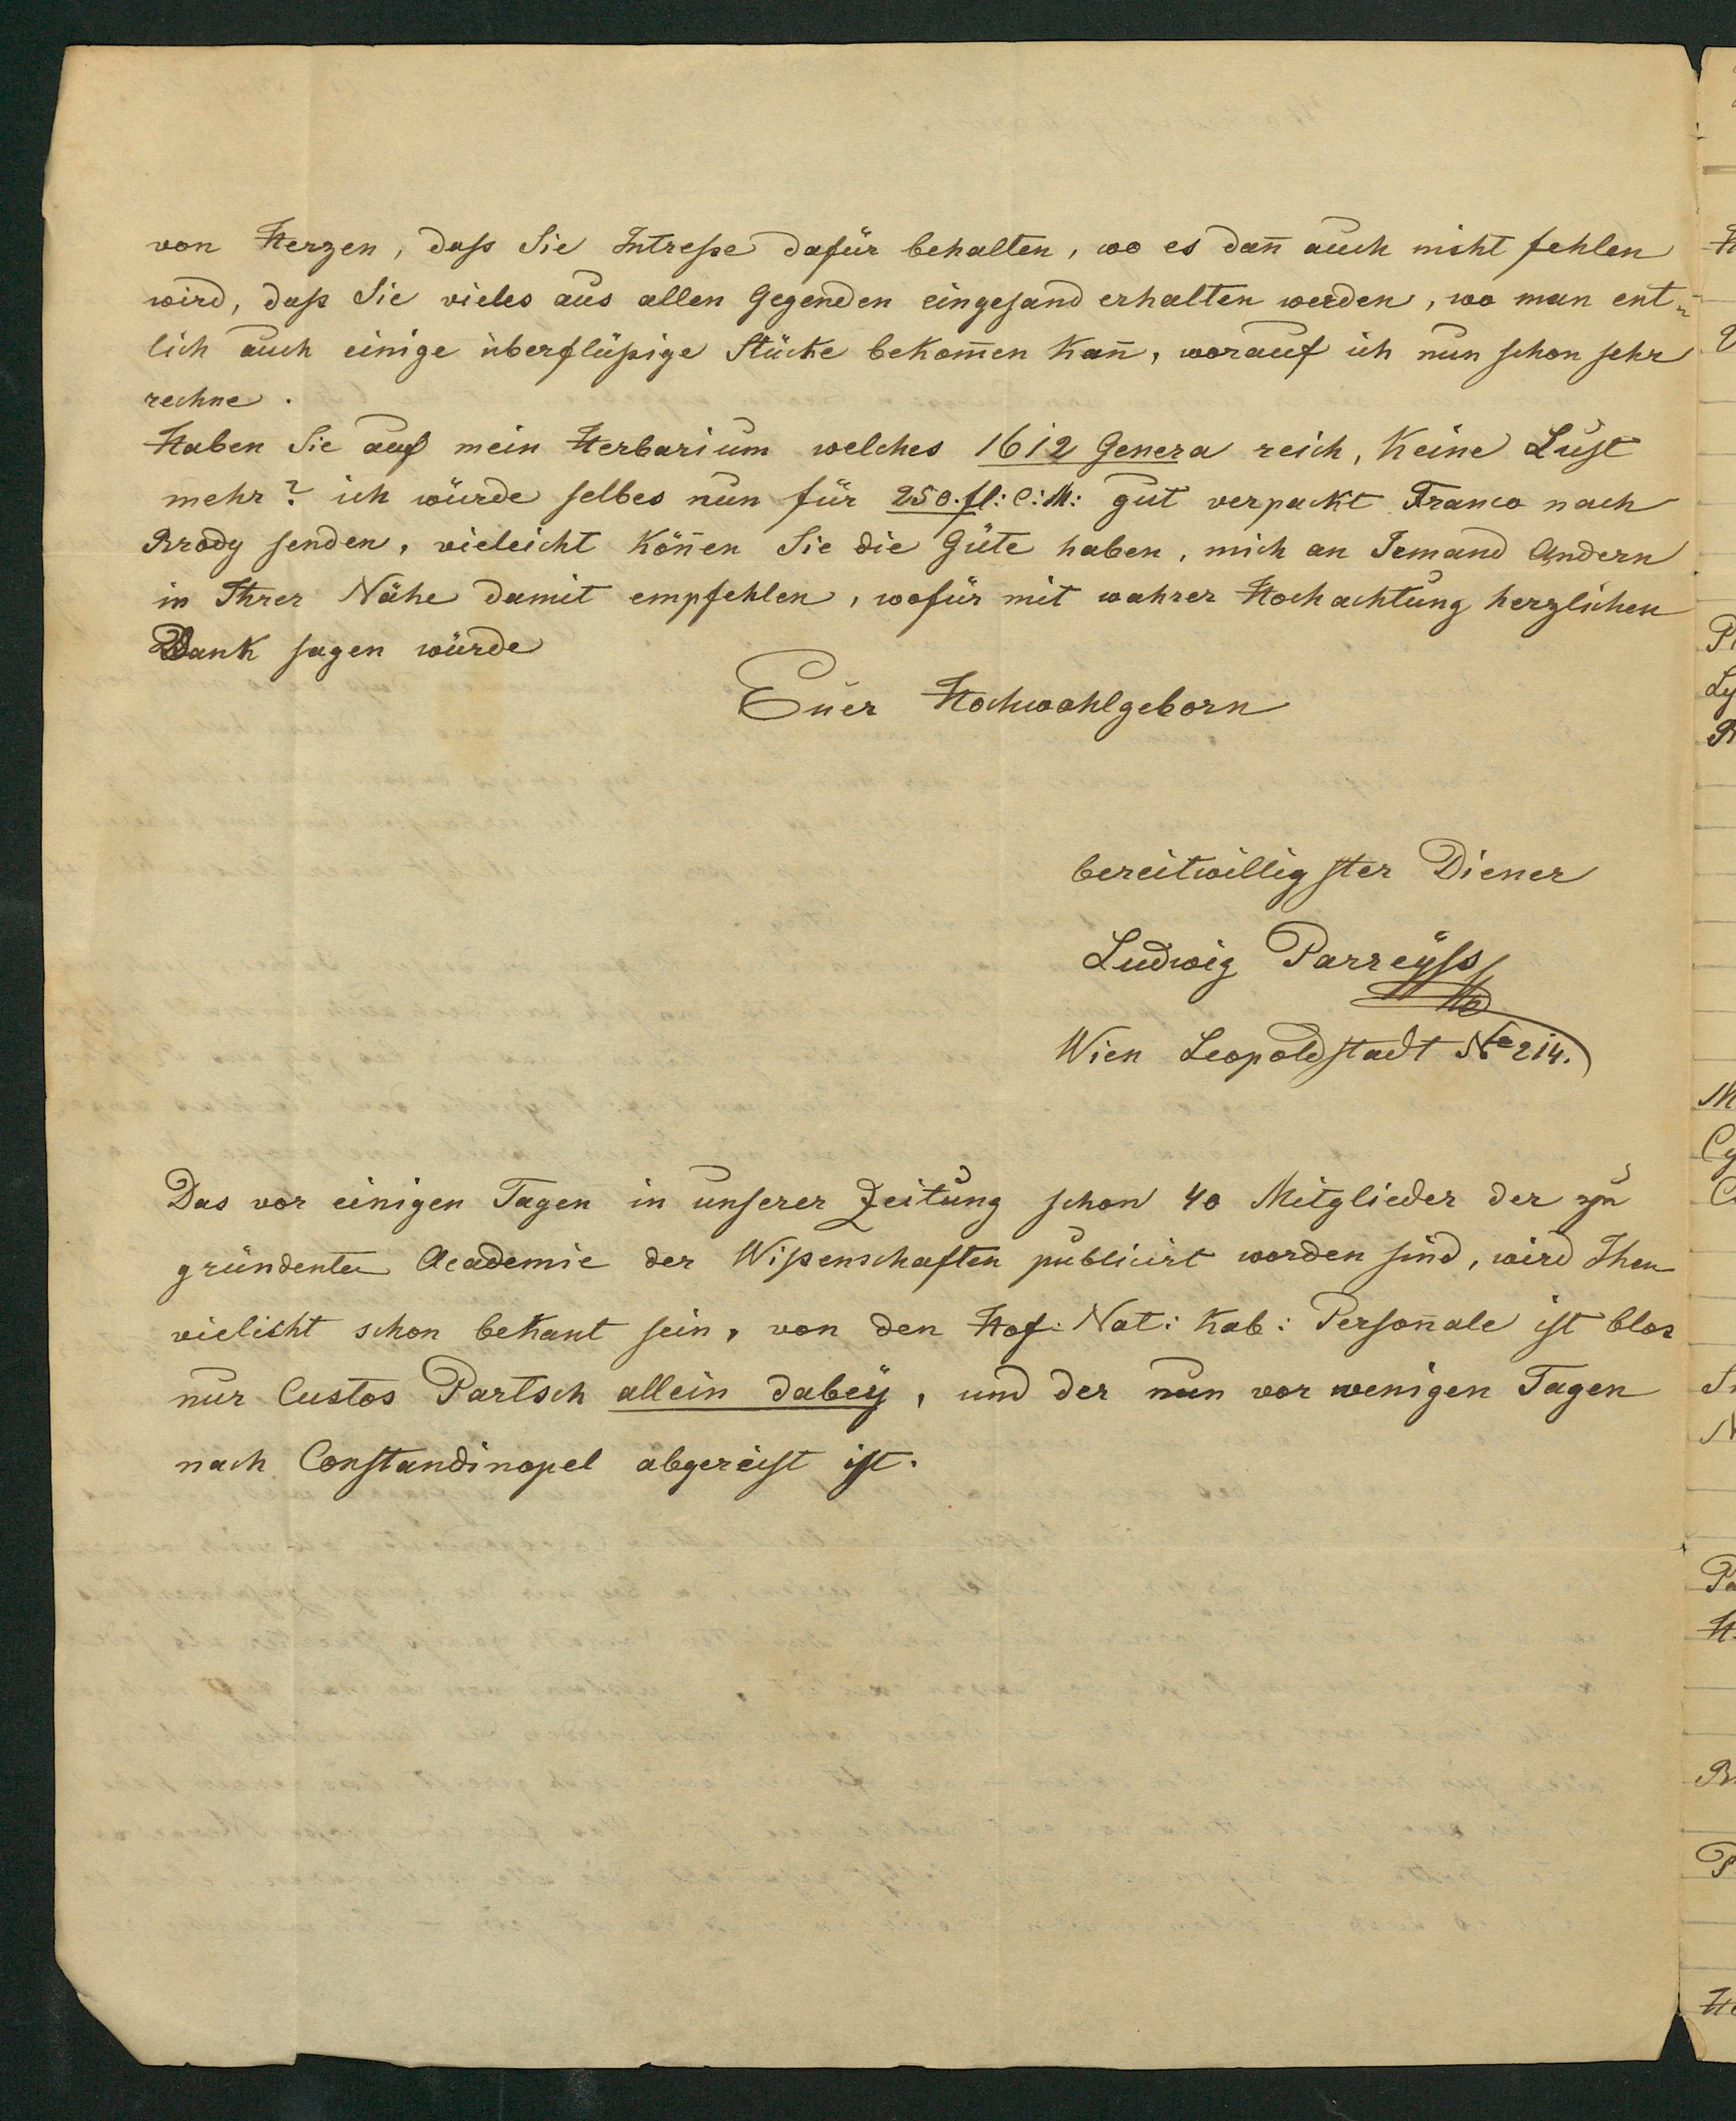 von Herzen, daß Sie Intreße dafür behalten, wo es dan̄ auch nicht fehlen
wird, daß Sie vieles aus allen Gegenden eingesand erhalten werden, wo man ent-
lich auch einige überflüßige Stücke bekom̄en kan̄, worauf ich nun schon sehr
rechne.
Haben Sie auf mein Herbarium welches 1612 Genera reich, keine Lust
mehr? ich würde selbes nun für 250. fl: C: M: gut verpackt Franco nach
Brody senden, vieleicht kön̄en Sie die Güte haben, mich an Jemand Andern
in Ihrer Nähe damit empfehlen, wofür mit wahrer Hochachtung herzlichen
Dank sagen würde
Euer Hochwohlgeborn
bereitwilligster Diener
Ludwig Parreÿss
Wien Leopoldstadt No 214.
Das vor einigen Tagen in unserer Zeitung schon 40 Mitglieder der zu
gründenten Academie der Wißenschaften publicirt worden sind, wird Ihen
vielicht schon bekant sein, von den Hof: Nat: Kab: Person̄ale ist blos
nur Custos Partsch allein dabeÿ, und der nun vor wenigen Tagen
nach Constandinopel abgereist ist.